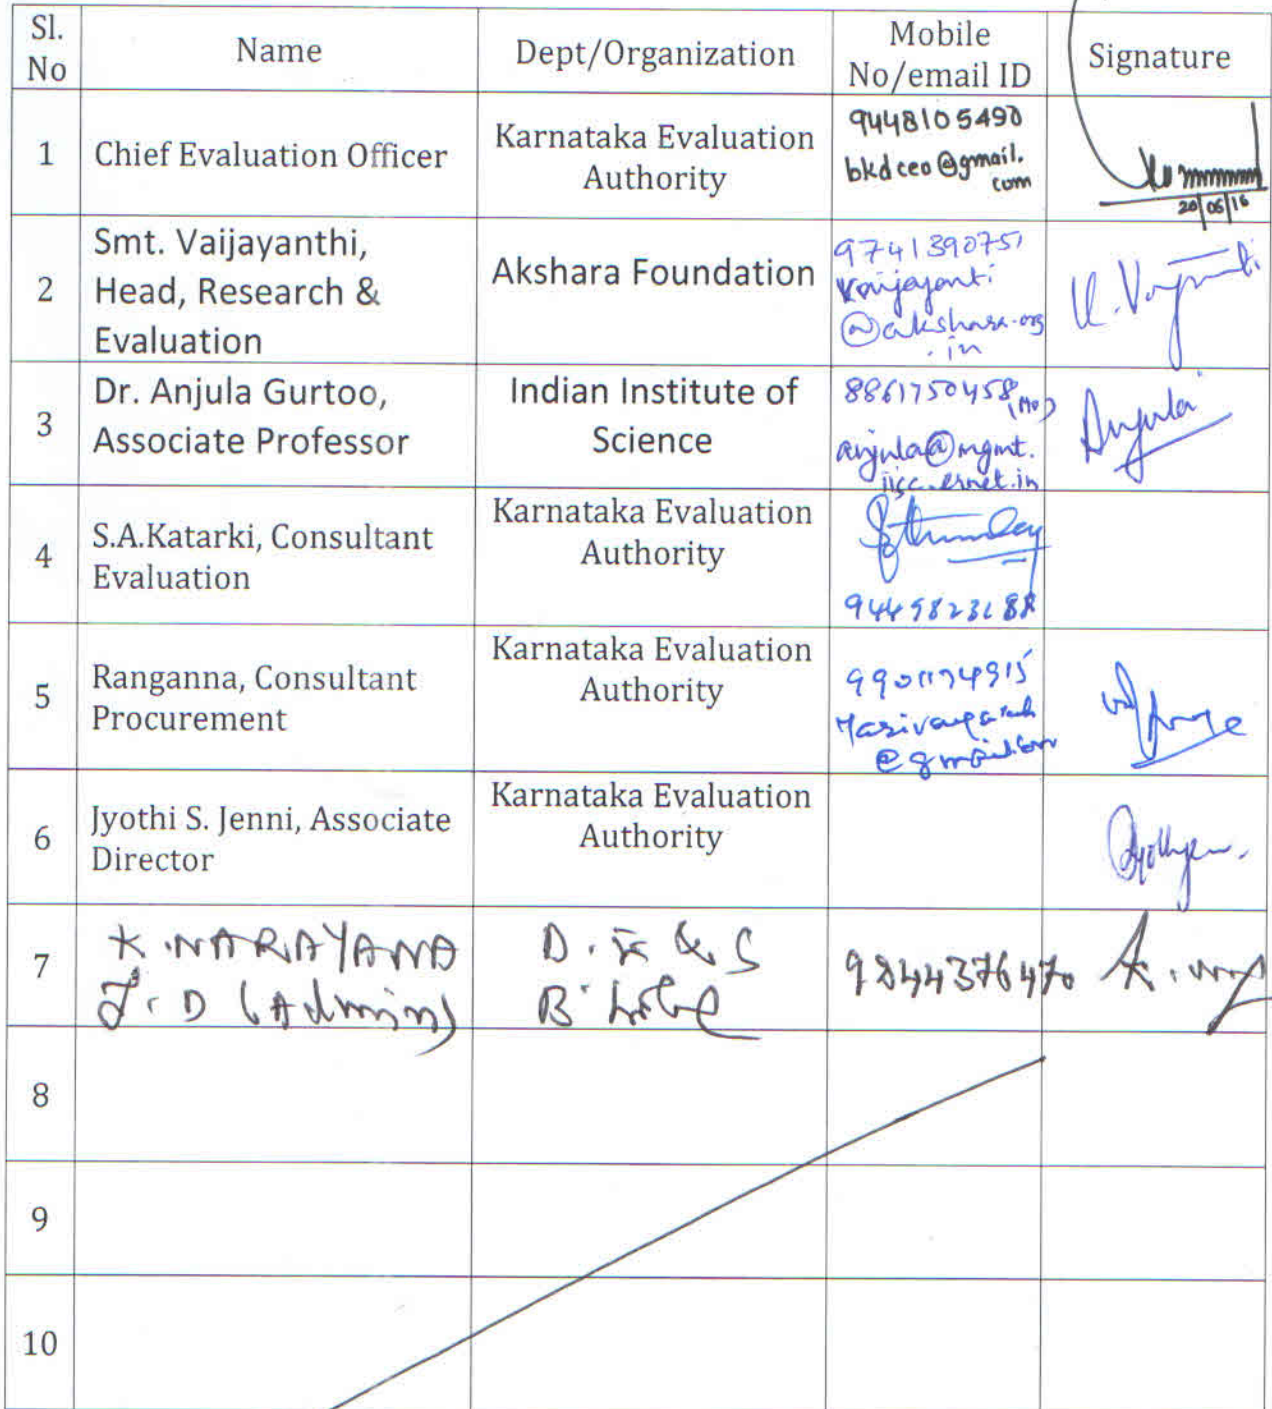 Sl.
No
Name
Dept/Organization
Mobile
No/email ID
Signature
1
Chief Evaluation Officer
Karnataka Evaluation
Authority
9448105490
bkdceo@gmail.
com
20/06/16
2
Smt. Vaijayanthi,
Head, Research &
Evaluation
Akshara Foundation
9741390751
Vaijayanti
@akshara.org
.in
K. Vaijayanti
3
Dr. Anjula Gurtoo,
Associate Professor
Indian Institute of
Science
8861750458
(Mo)
anjula@mgmt.
iisc.ernet.in
Anjula
4
S.A.Katarki, Consultant
Evaluation
Karnataka Evaluation
Authority
5
Ranganna, Consultant
Procurement
Karnataka Evaluation
Authority
6
Jyothi S. Jenni, Associate
Director
Karnataka Evaluation
Authority
7
K. NARAYANA
J.D (Admin)
9844376470
8
9
10